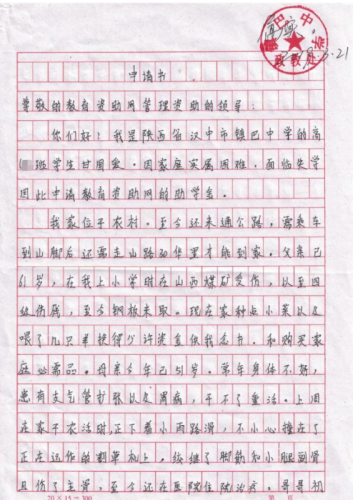 镇巴中学
政教处
申请书
尊敬的教育资助网管理资助的领导：
你们好！我是陕西省汉中市镇巴中学的高
班学生甘围奎。因家庭实属困难，面临失学
因此申请教育资助网的助学金。
我家位于农村，至今还未通公路，需乘车
到山脚后还需走山路动华里才能到家。父亲已
61岁，在我上小学时在山西煤矿受伤，以至四
级伤残，至今钢板未取。现在家种点小菜以及
喂了几只羊换得少许资金供我念书，和购买家
庭必需品。母亲今年已51岁。常年身体不好，
患有支气管扩张以及胃病，干不了重活。上周
在家干农活时正下着小雨路滑，不小心撞在了
正在运作的翻草机上，按继了脚筋和小腿副骨
且伤了主骨，至今还在医院住院治疗。哥哥初
20×15=300
第 页